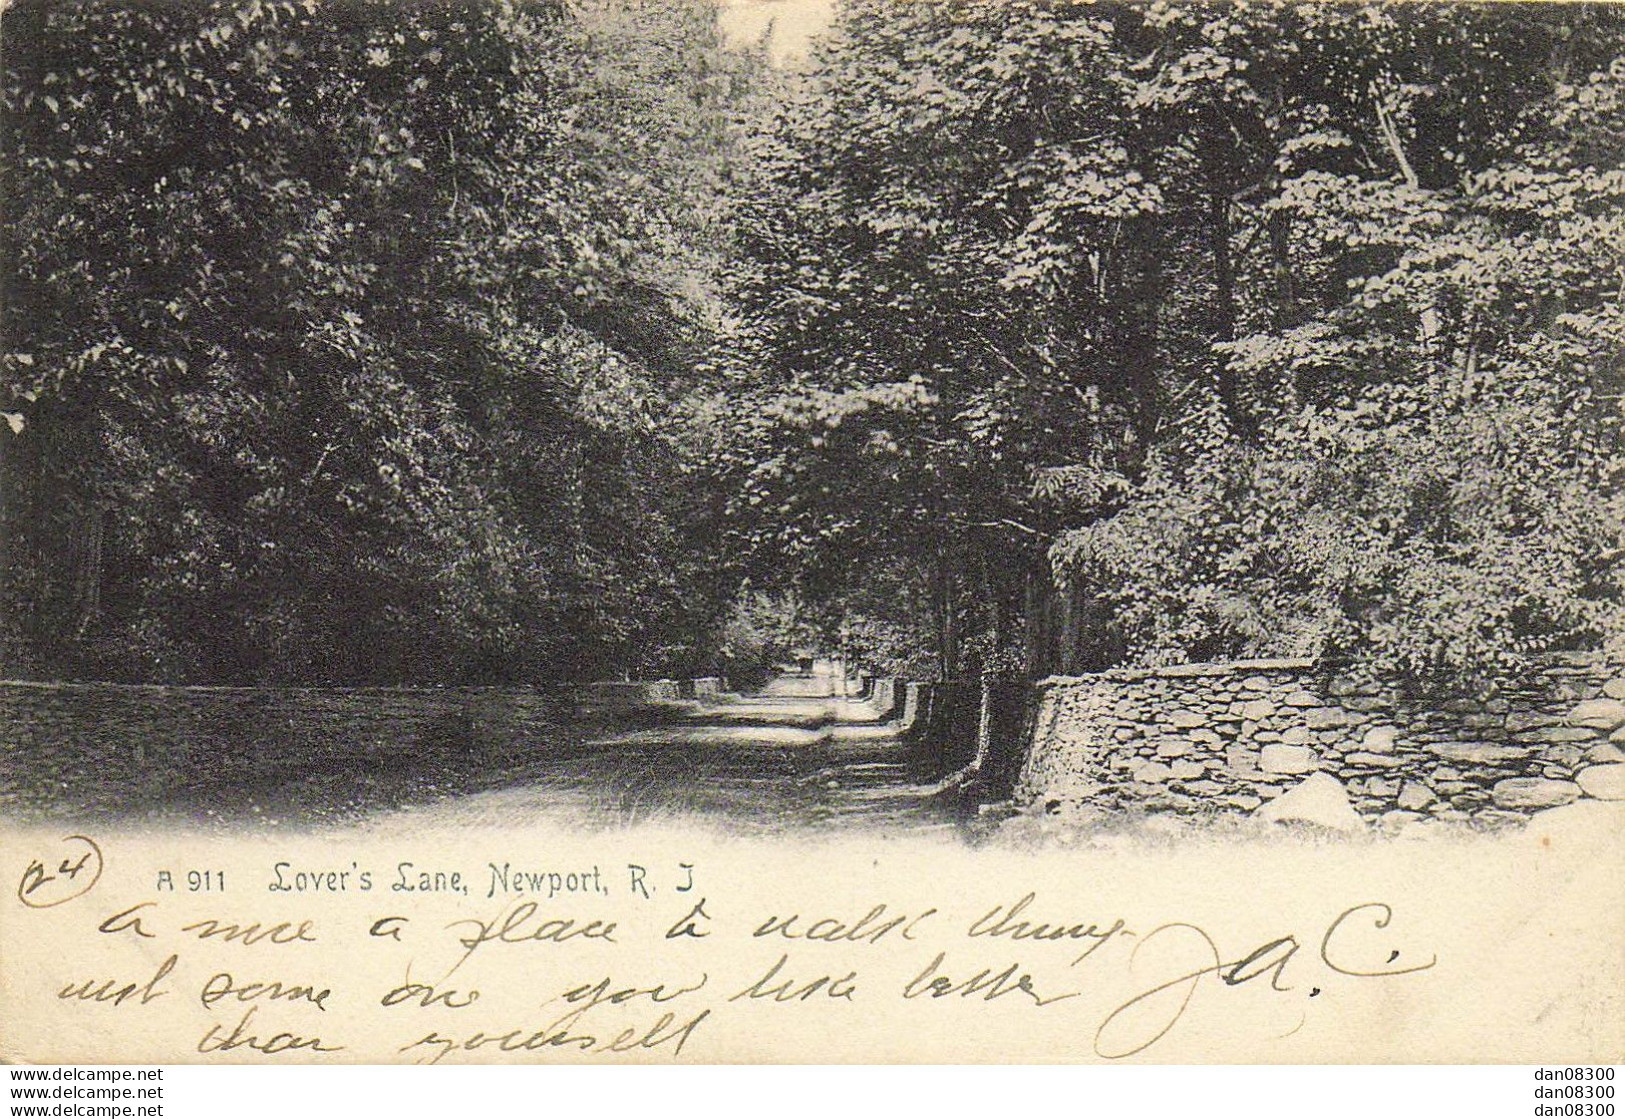 24
A 911 Lover's Lane, Newport, R. I
a nice a place to walk
with some one you like better J.A.C.
than yourself
www.delcampe.net dan08300
www.delcampe.net dan08300
www.delcampe.net dan08300